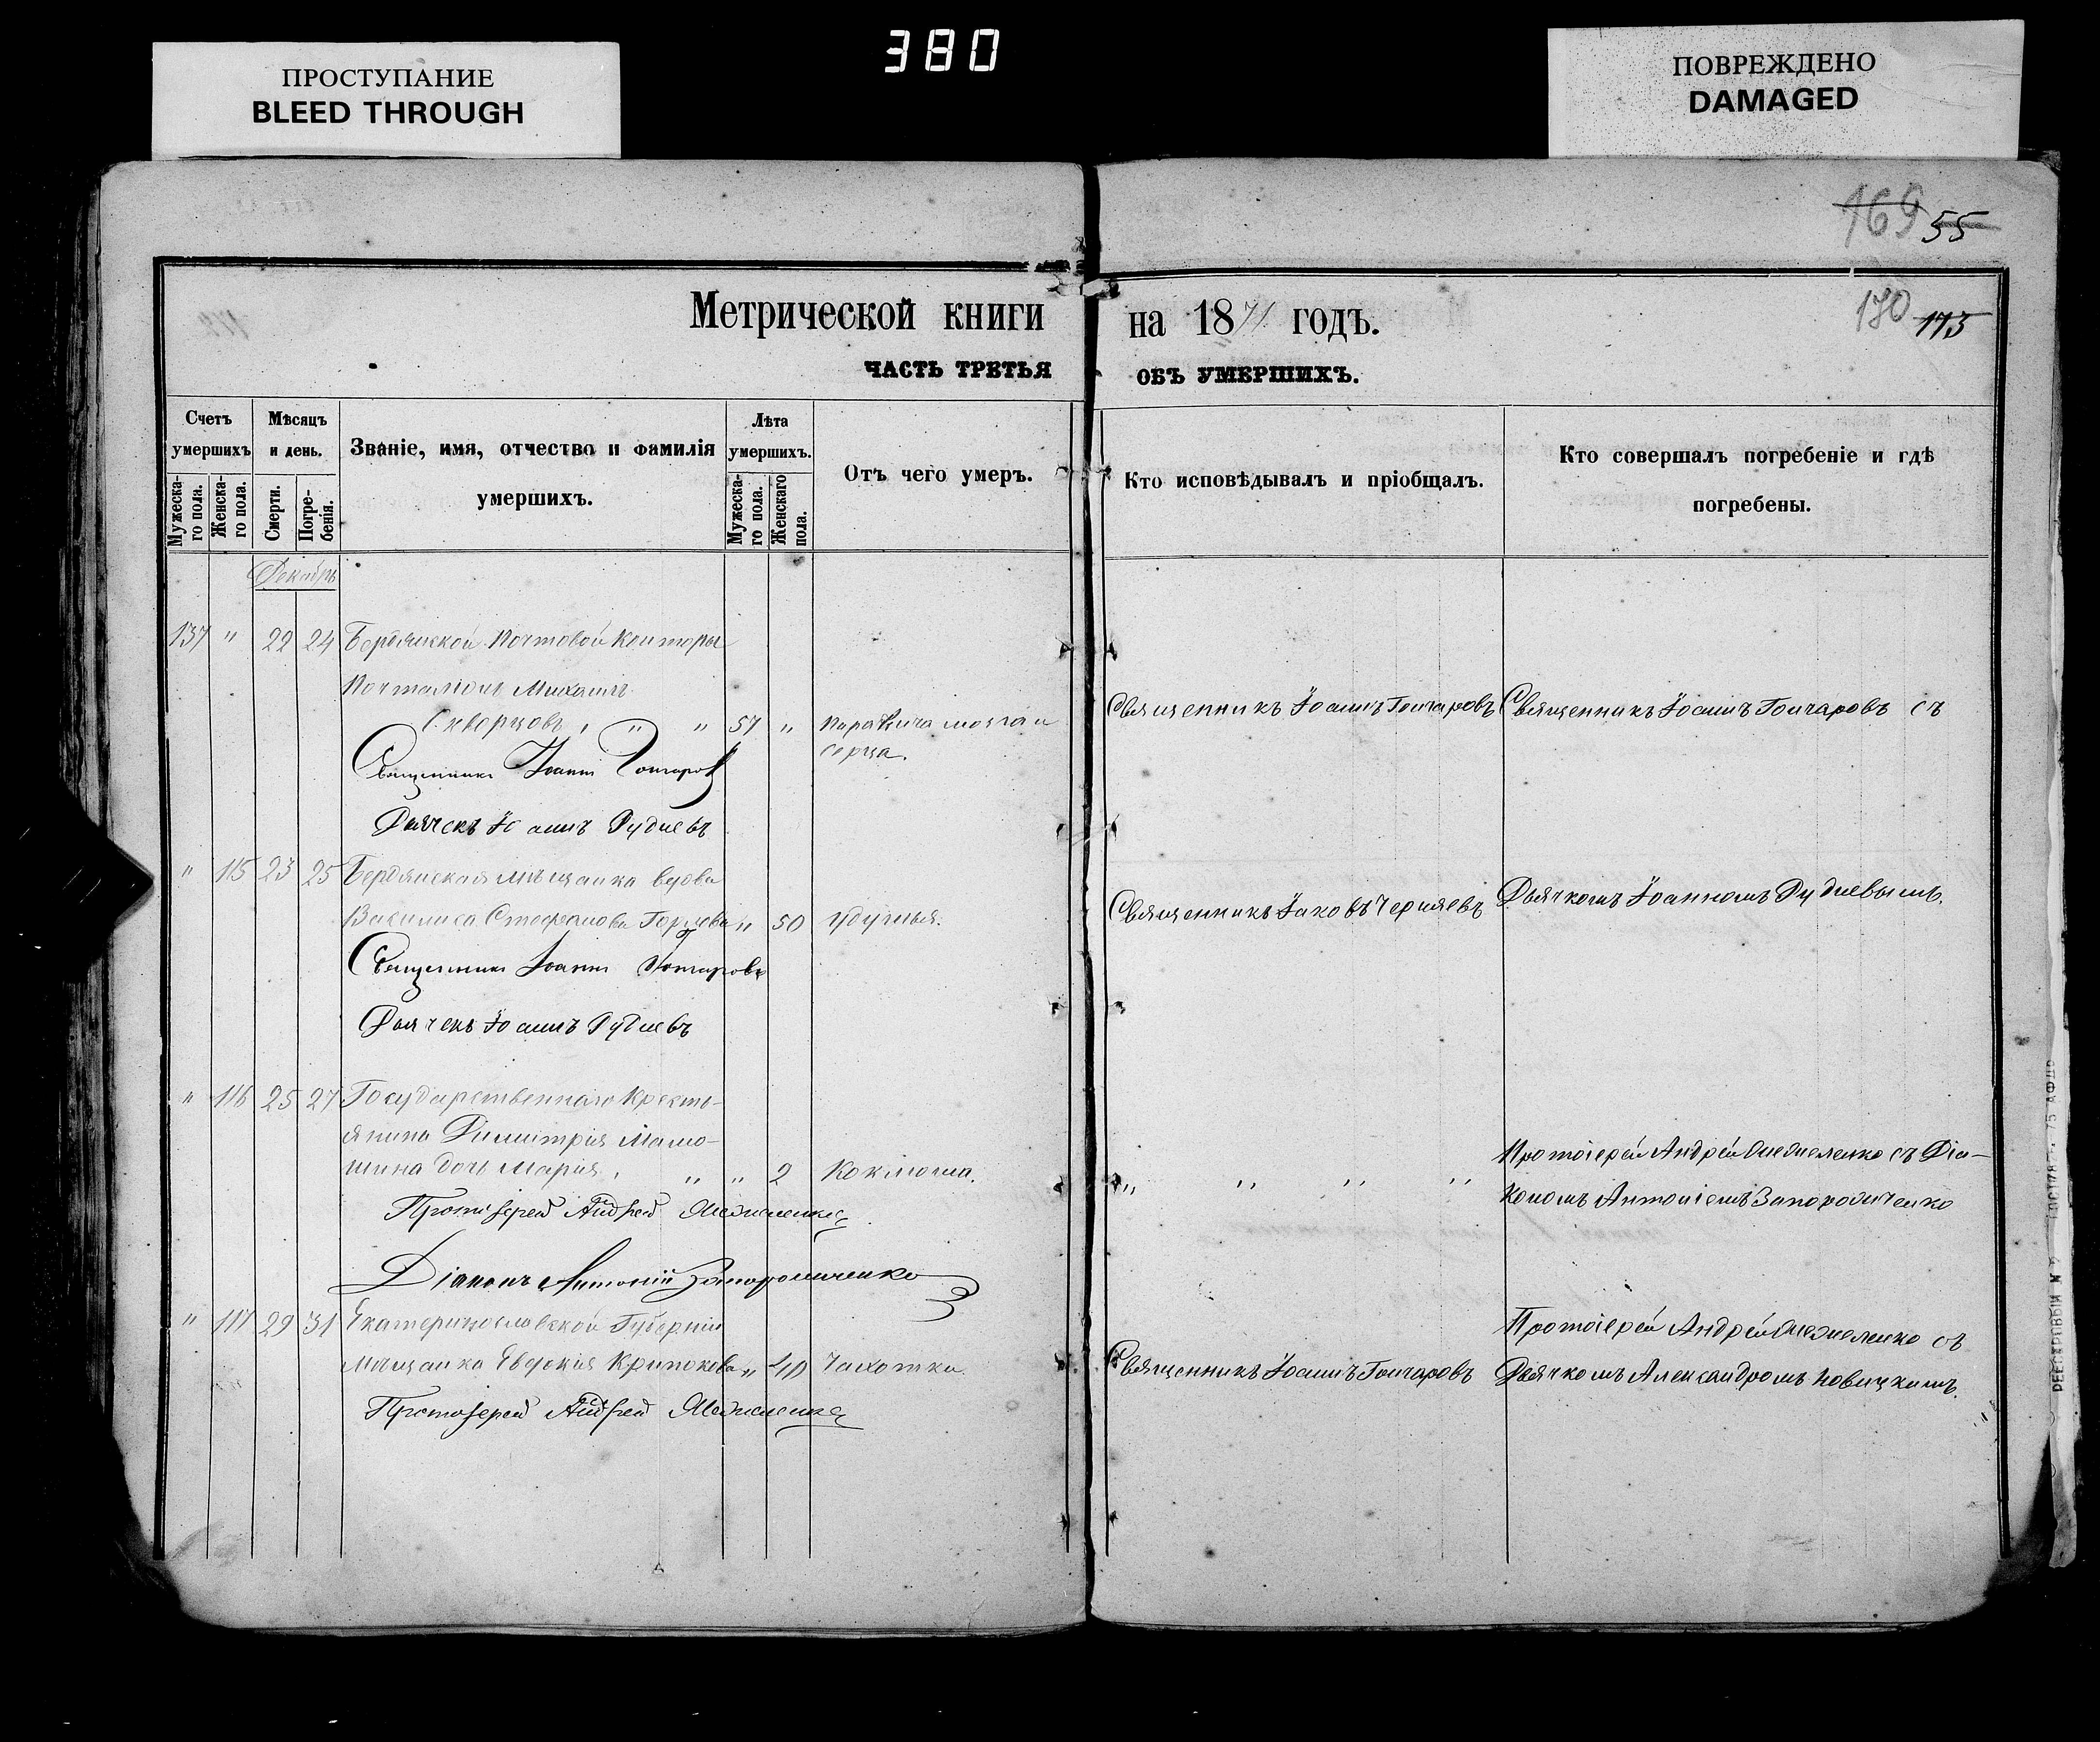 380
ПРОСТУПАНИЕ
BLEED THROUGH
ПОВРЕЖДЕНО
DAMAGED
169 55
180 173
Метрической книги на 1871 годъ.
ЧАСТЬ ТРЕТЬЯ ОБЪ УМЕРШИХЪ.
Счетъ умершихъ
Мужеска-го пола.
Женска-го пола.
Мѣсяцъ и день.
Смерти.
Погре-бенія.
Званіе, имя, отчество и фамилія
умершихъ.
Лѣта умершихъ.
Мужеска-го пола.
Женскаго пола.
Отъ чего умеръ.
Кто исповѣдывалъ и пріобщалъ.
Кто совершалъ погребеніе и гдѣ
погребены.
Декабрь
137 " 22 24 Бердянской Почтовой Конторы
Почталіонъ Михаилъ
Скворцовъ, " " 57 " Паралича мозга и
сердца.
Священникъ Іоаннъ Гончаровъ
Священникъ Іоаннъ Гончаровъ съ
Священникъ Іоаннъ Гончаровъ
Дьячекъ Іоаннъ Рудневъ
" 115 23 25 Бердянская мѣщанка вдова
Василиса Стефанова " 50 Удушья.
Священникъ Іаковъ Черняевъ
Дьячкомъ Іоанномъ Рудневымъ.
Священникъ Іоаннъ Гончаровъ
Дьячекъ Іоаннъ Рудневъ
" 116 25 27 Государственнаго Кресть-
янина Димитрія Мамо-
шина дочь Марія, " " 2 Коклюша.
" " " "
Протоіерей Андрей съ Діа-
кономъ Антоніемъ Запорожченко
Протоіерей Андрей
Діаконъ Антоній Запорожченко
" 117 29 31 Екатеринославской Губерніи
мѣщанка Евдокія " 40 Чахотки.
Священникъ Іоаннъ Гончаровъ
Протоіерей Андрей съ
Дьячкомъ Александромъ Новицкимъ.
Протоіерей Андрей